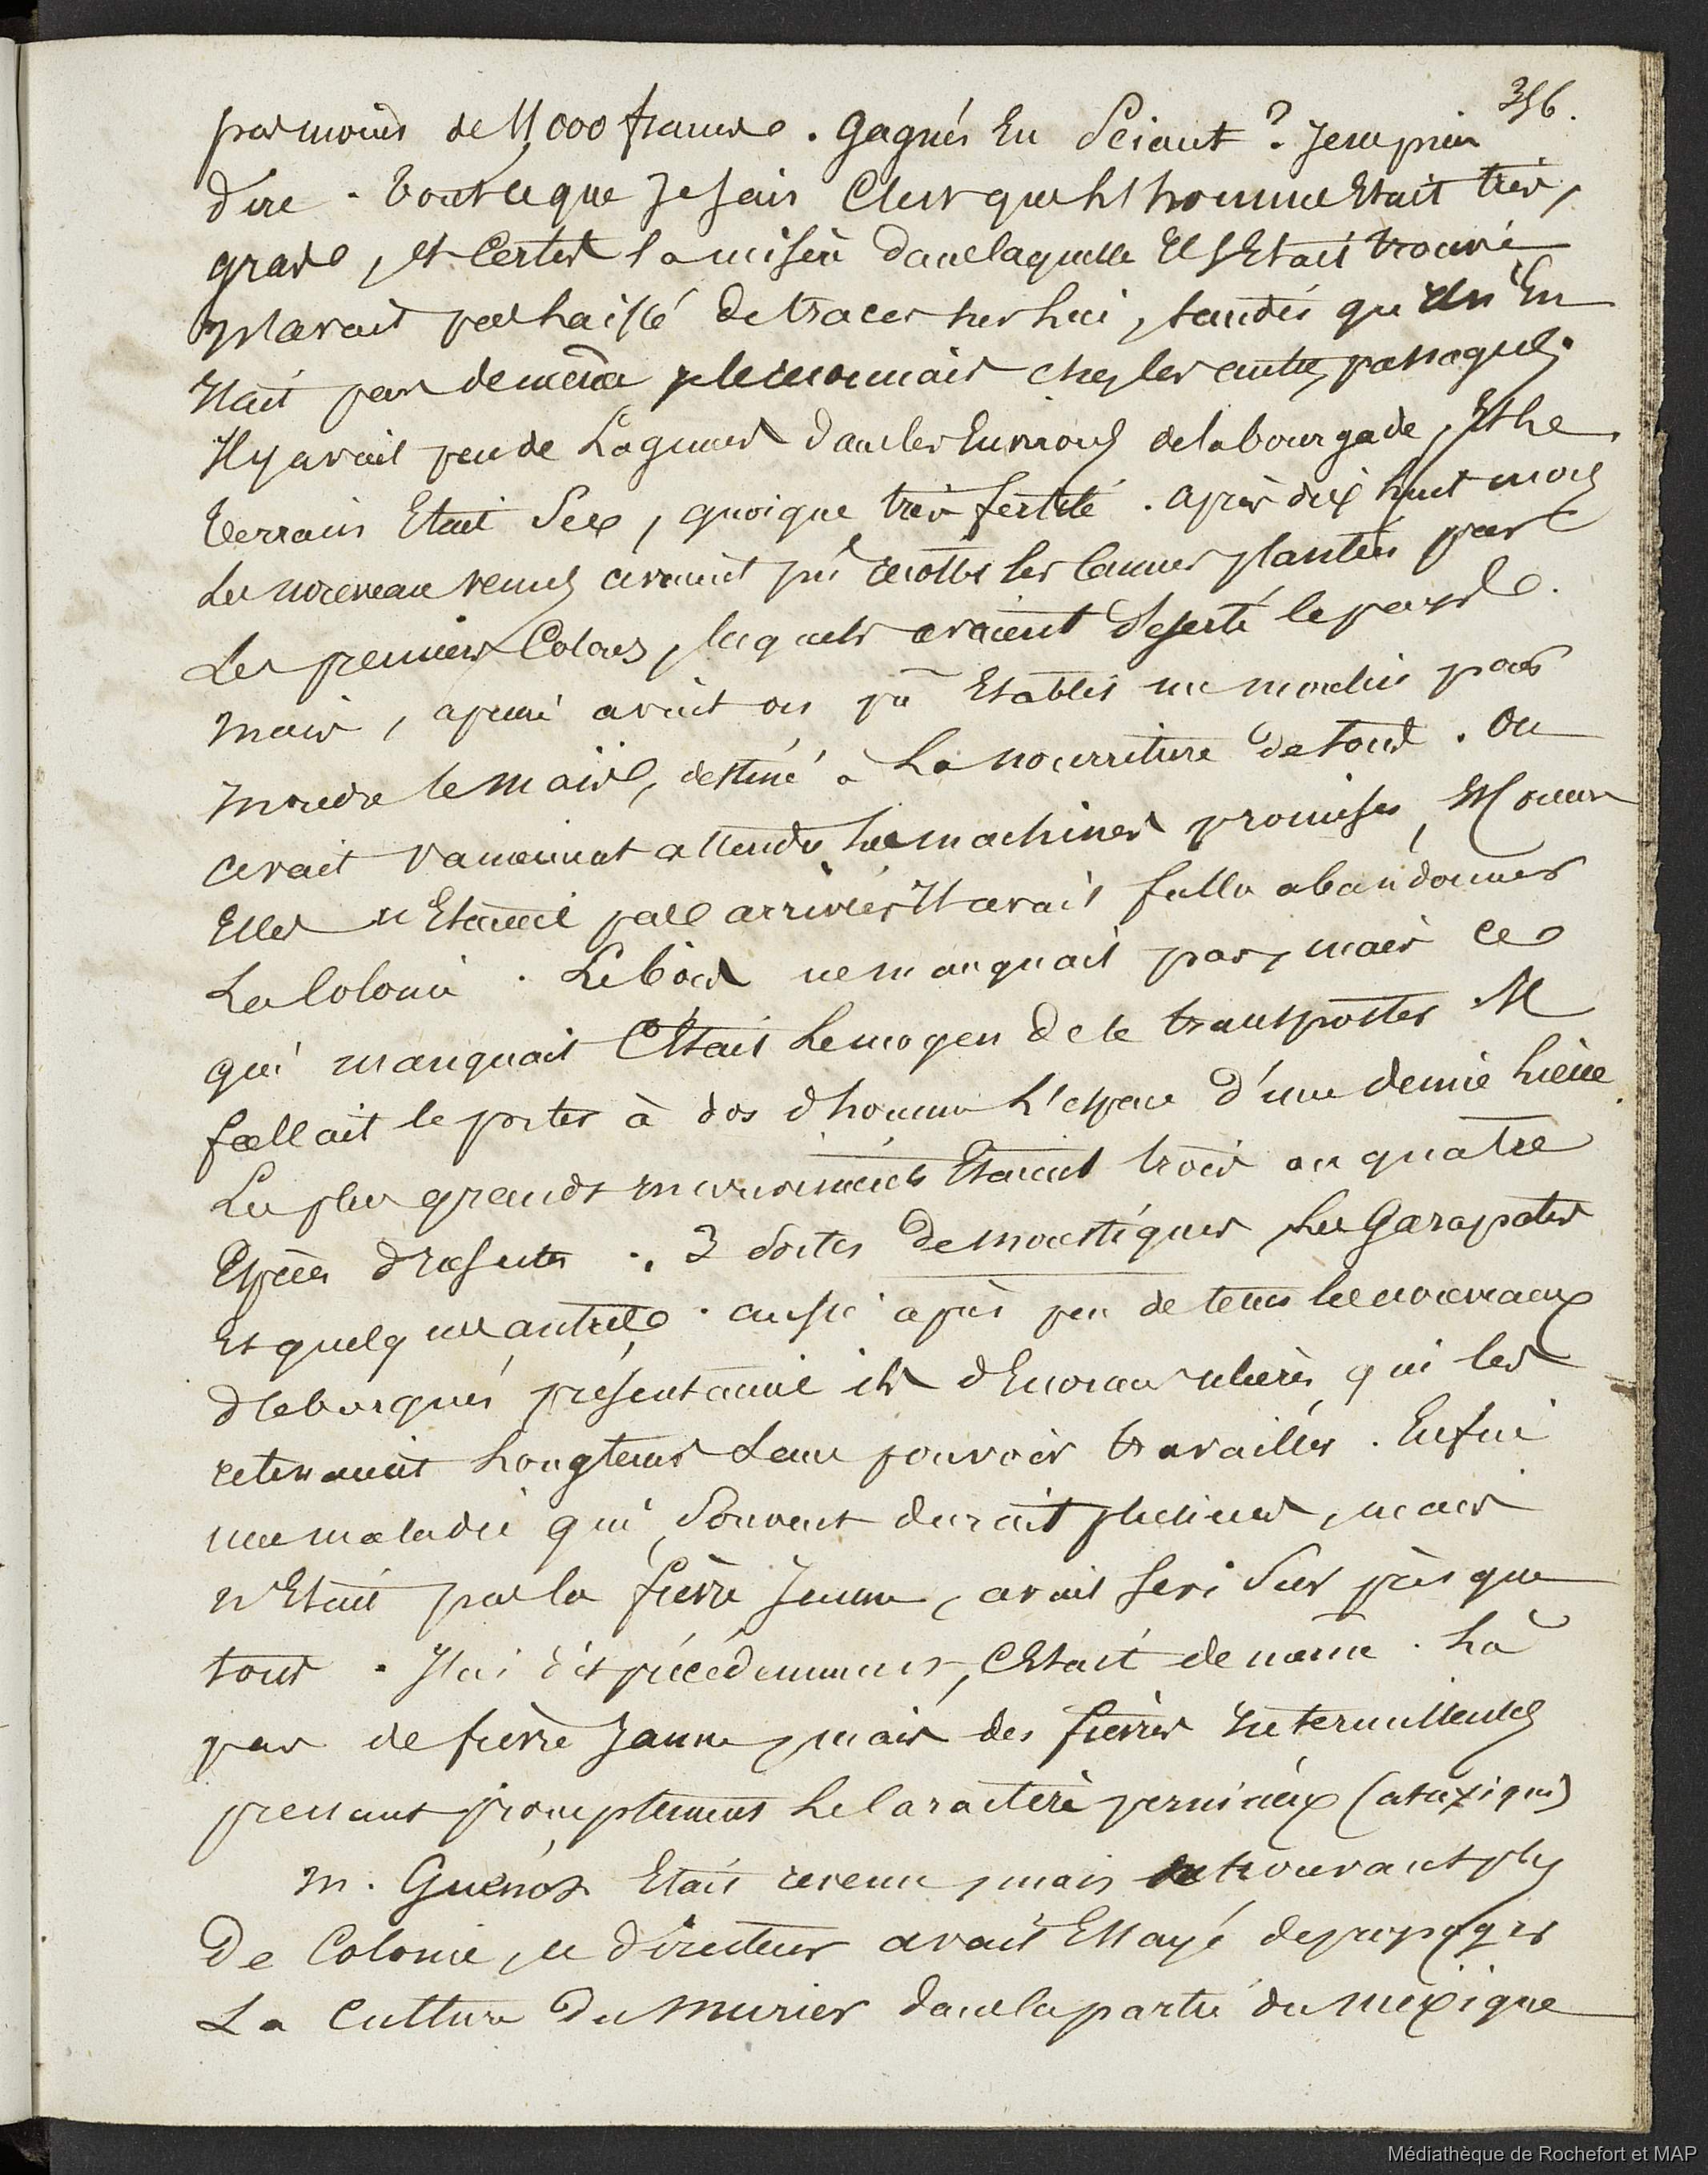 356.
pas moins de 11,000 francs. Gagnés En Sciant? Je ne puis
dire. tout ce que Je sais C'est que l'homme Etait très,
gras, et Certes la misère dans laquelle Il s'Etait trouvé
n'avait pas laissé de traces sur lui, tandis qu'il n'En
Etait pas de même chez les autres passagers.
Il y avait peu de Lagunes dans les Environs de la bourgade, Et le
terrain Etait Sec, quoique très fertile. après dix huit mois
Les nouveau venus avaient pu récolter les Cannes plantées par
Les premiers Colons, lesquels avaient deserté le pays.
mais, a peine avait on pu Etablir un moulin pour
moudre le maïs, destiné à La nourriture de tous. On
avait vainement attendu les machines promises, Et comme
Elles n'Etaient pas arrivées Il avait fallu abandonner
La Colonie. Le bois ne manquait pas, mais ce
qui manquait C'Etait le moyen de le transporter Il
fallait le porter à dos d'homme L'espace d'une demie lieue.
Les plus grands inconvénients Etaient trois ou quatre
Espèces d'Insectes. 3 Sortes de moustiques, les Garapates
Et quelques autres. aussi après peu de tems les nouveaux
débarqués présentaient ils d'Enormes ulcères qui les
retenaient Longtems Sans pouvoir travailler. Enfin
une maladie qui Souvent durait plusieurs mois
n'Etait pas la fièvre Jaune, avait Sévi Sur presque
tous. Je l'ai dit précédemment, C'Etait de même. Là
pas de fièvre Jaune, mais des fièvres Intermittentes
prenant promptement Le Caractère pernicieux (ataxique)
M. Guénot Etait revenu, mais ne trouvant plus
De Colonie, ce directeur avait Essayé de propager
La Culture Du Murier dans la partie du Mexique
Médiathèque de Rochefort et MAP